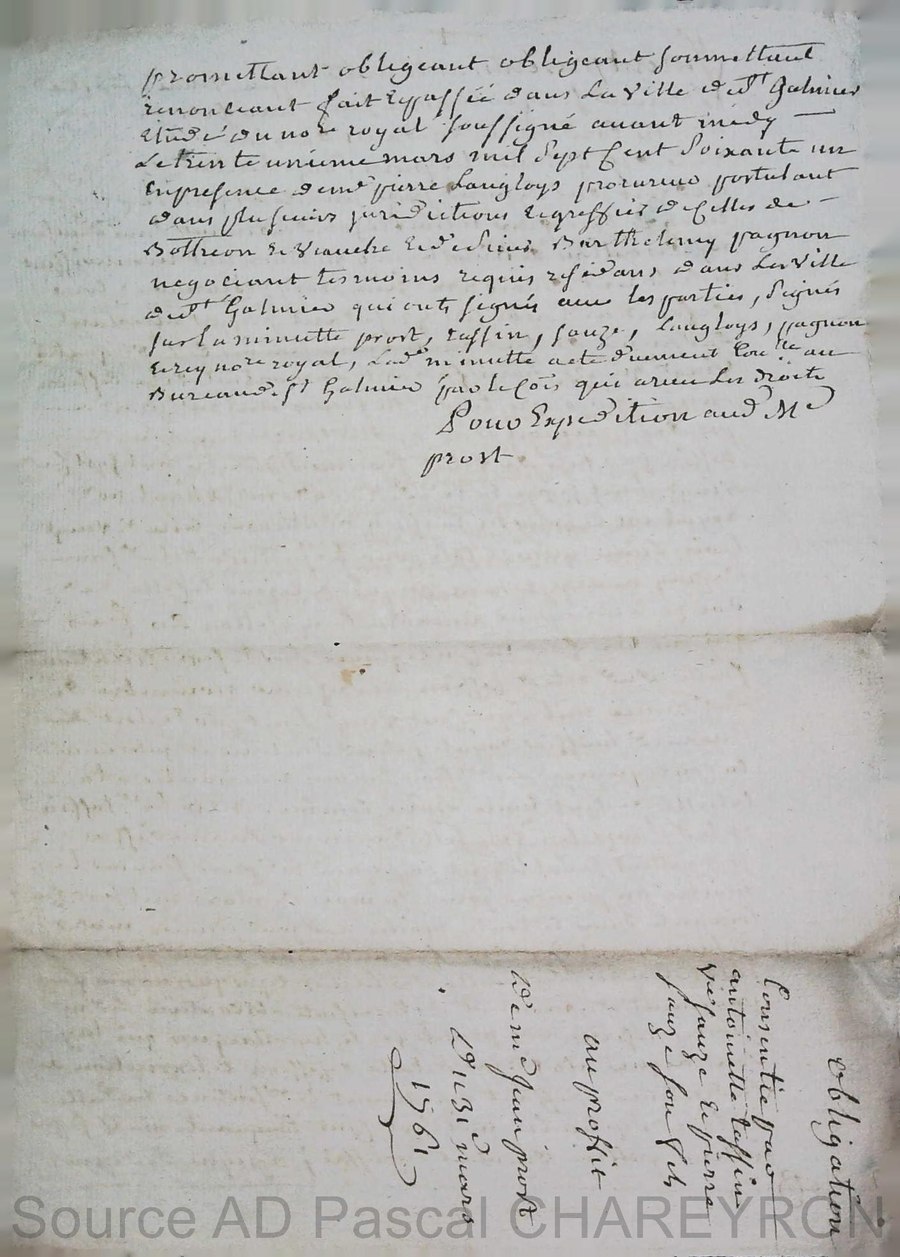 promettant obligeant obligeant soumettant
renonceant fait & passée dans la ville de st Galmier
etude du nore royal soussigné avant midy
Le trente unieme mars mil sept cent soixante un
en presence de me pierre Langloys procureur postulant
dans plusieurs juridictions & greffier de celles de
Botheon & & de Barthelemy pagnon
negociant tesmoins requis residans dans la ville
de st Galmier qui onts signés avec les parties, signés
sur la minutte prost, taffin, sauze, Langloys, pagnon
& rey nore royal, lade minutte acte duement con.lée au
Bureau de st Galmier par le Cois qui a receu les droits
Pour Expedition aud Me
prost
obligation
Consentie par
antoinette taffin
ve sauze & pierre
sauze son fils
au profit
de me Jean prost
du 31e mars
1761
Source AD Pascal CHAREYRON